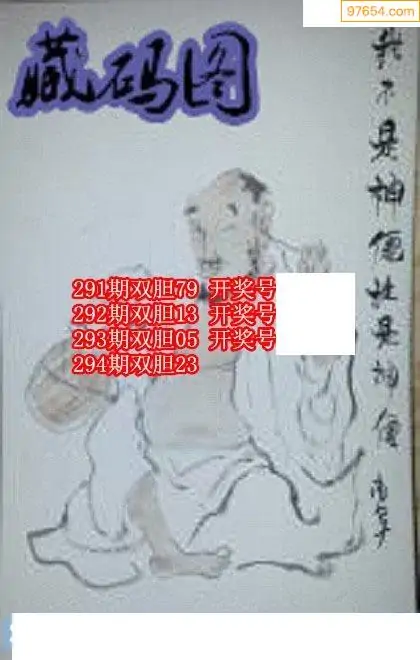 97654.com
藏码图
我不是神僊 是神僊
291期双胆79 开奖号
292期双胆13 开奖号
293期双胆05 开奖号
294期双胆23